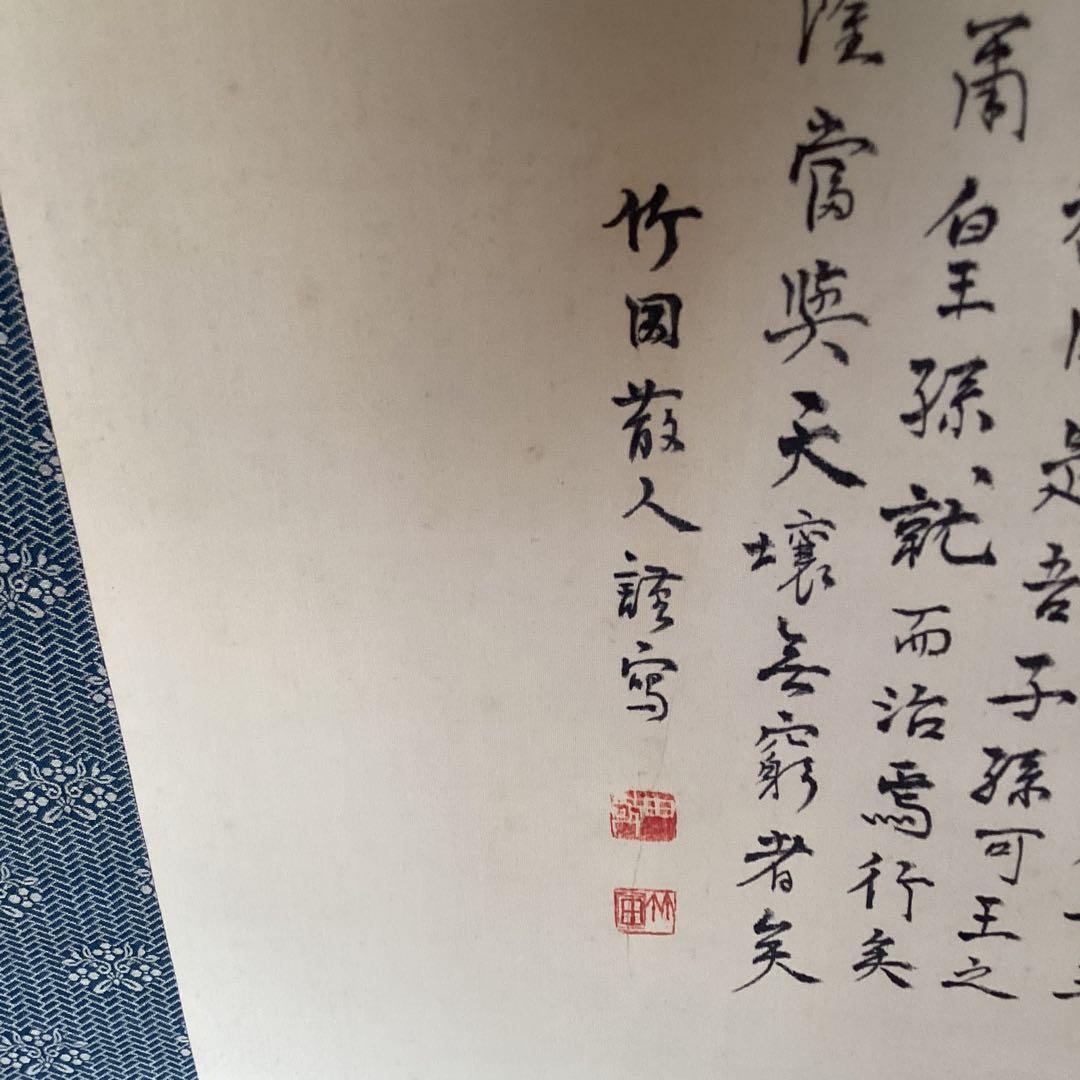 是吾子孫可王之
爾皇孫就而治焉行矣
隆當與天壤無窮者矣
竹園散人謹寫